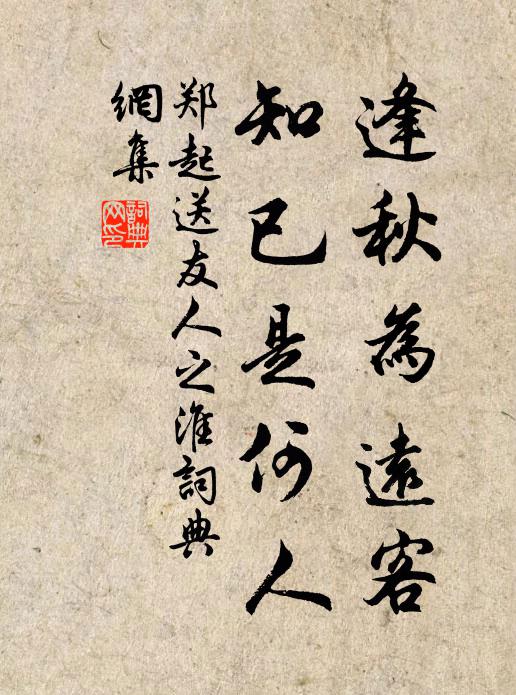 逢秋為遠客
知已是何人
郑起送友人之淮詞典
網集
詞典
网印